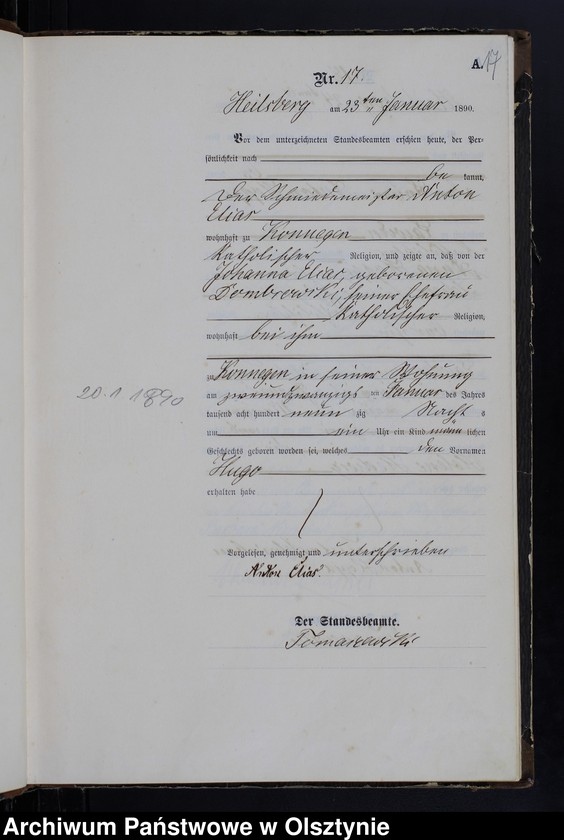 A. 17
Nr. 17.
Heilsberg am 23ten Januar 1890.
Vor dem unterzeichneten Standesbeamten erschien heute, der Per-
sönlichkeit nach
be kannt,
Der Schmiedemeister Anton
Elias
wohnhaft zu Konnegen
katholischer Religion, und zeigte an, daß von der
Johanna Elias, geborenen
Dombrowski, seiner Ehefrau
katholischer Religion,
wohnhaft bei ihm
zu Konnegen in seiner Wohnung
am zweiundzwanzigs ten Januar des Jahres
tausend acht hundert neun zig Nacht s
um ein Uhr ein Kind männ lichen
Geschlechts geboren worden sei, welches den Vornamen
Hugo
erhalten habe
20.1 1890
Vorgelesen, genehmigt und unterschrieben
Anton Elias.
Der Standesbeamte.
Tomaszewski
Archiwum Państwowe w Olsztynie